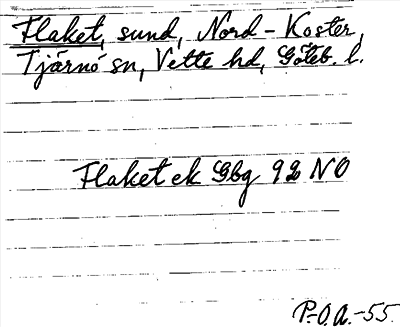 Flaket, sund, Nord-Koster,
Tjärnö sn, Vette hd, Göteb. l.
Flaket ek Gbg 92 NO
P-O.A.-55.